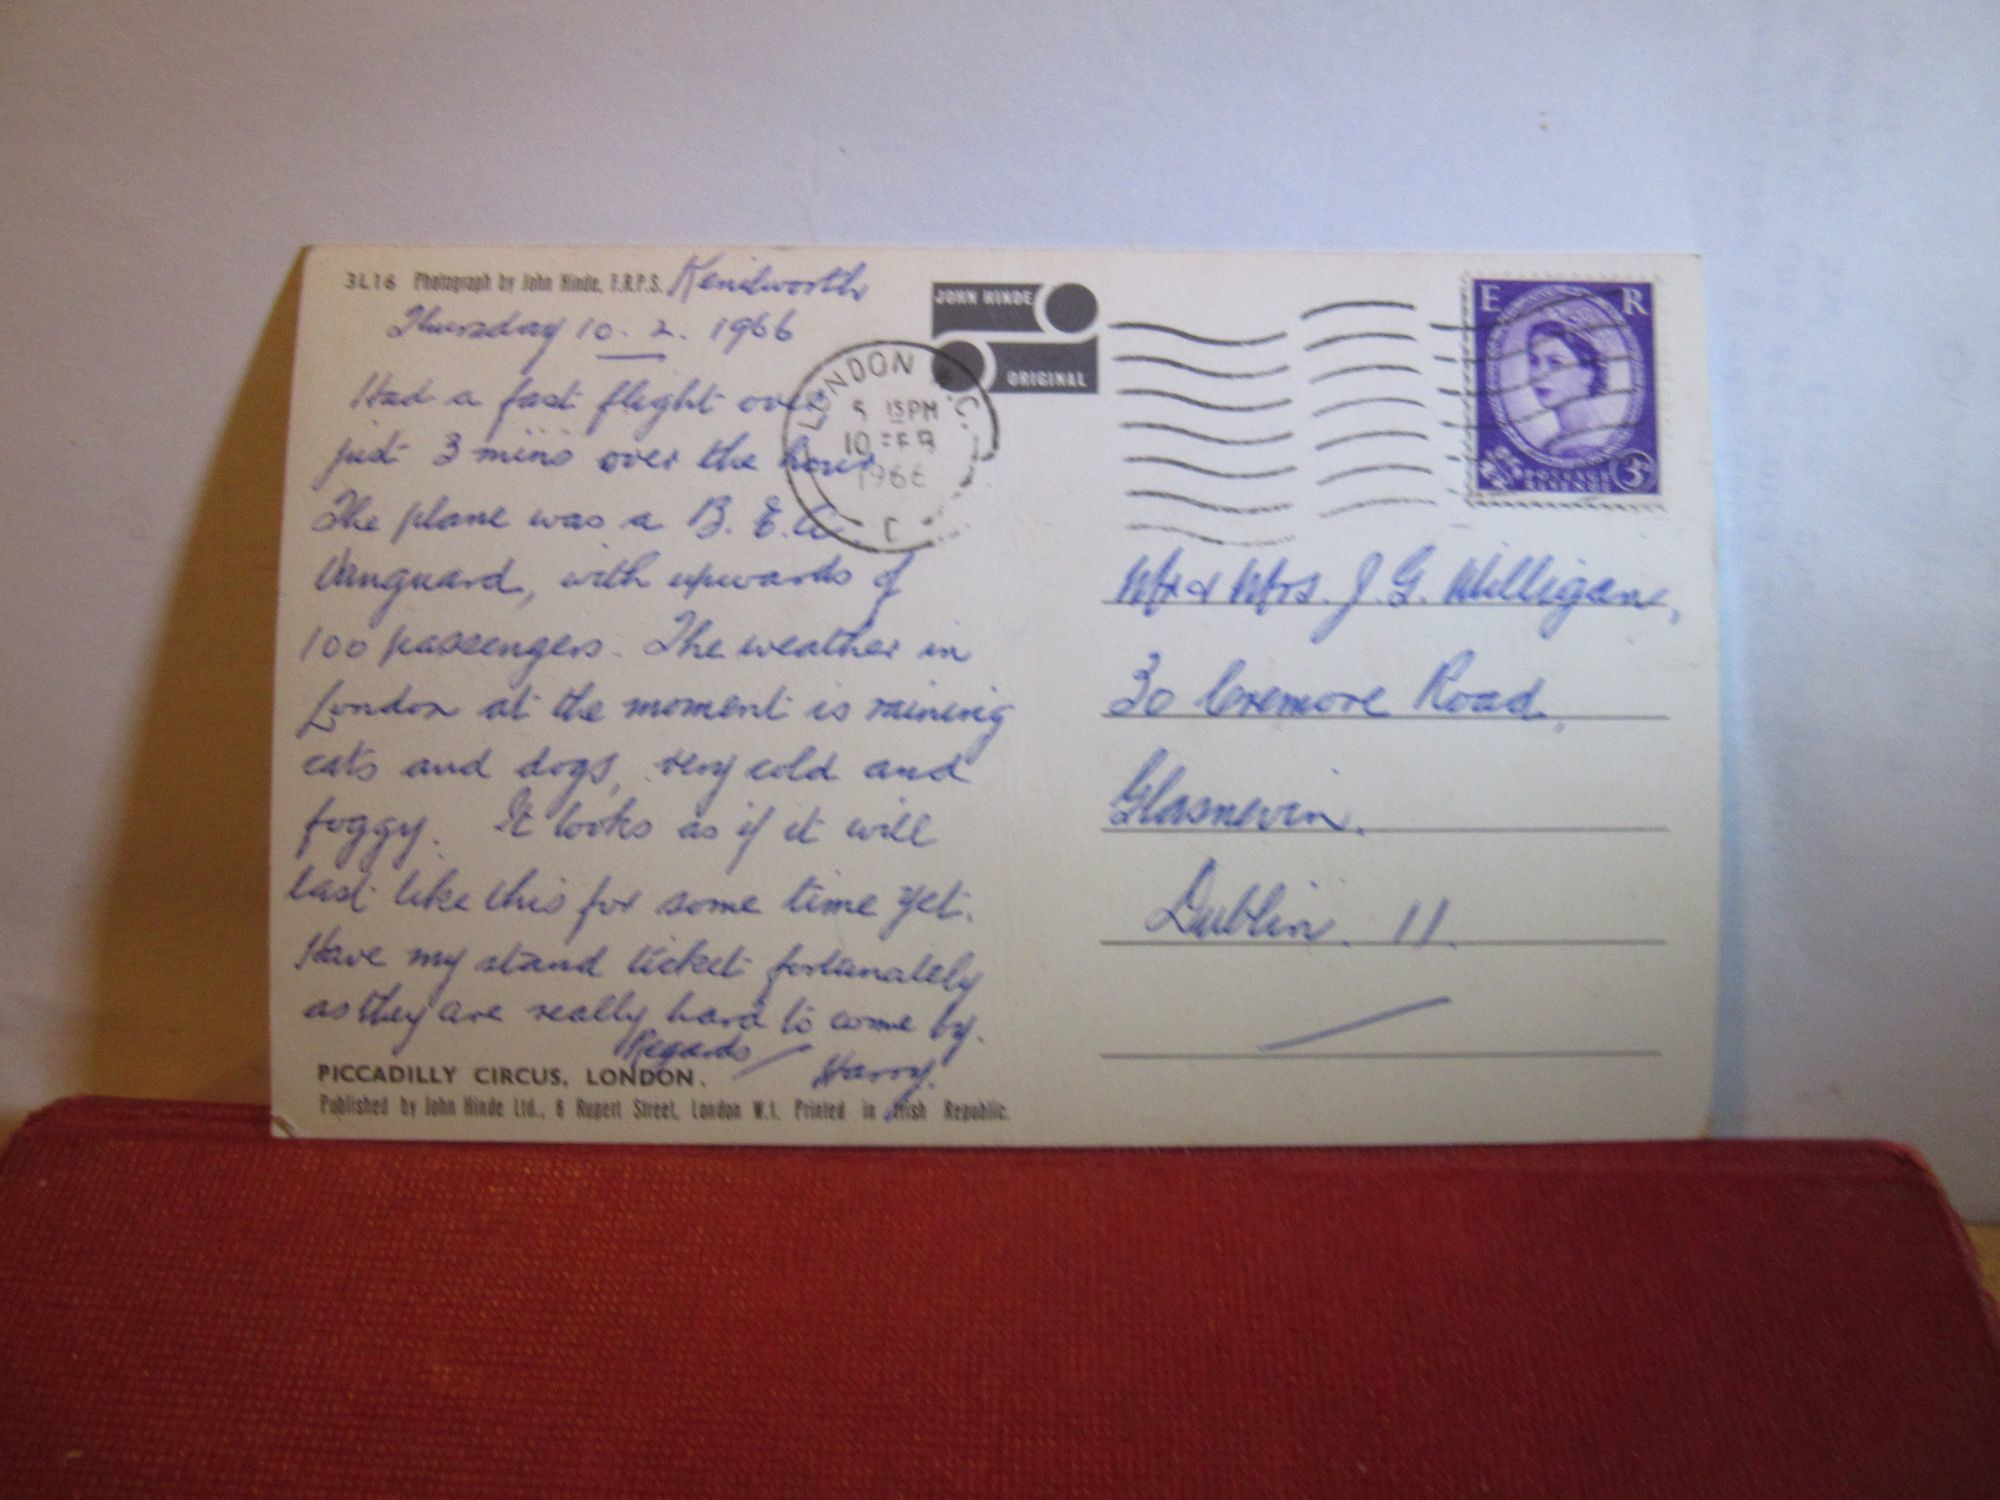 3L16 Photograph by John Hinde, F.R.P.S. Kenilworth
Thursday 10. 2. 1966
Had a fast flight over
just 3 mins over the hour
The plane was a B.E.A.
Vanguard, with upwards of
100 passengers. The weather in
London at the moment is raining
cats and dogs, very cold and
foggy. It looks as if it will
last like this for some time yet.
Have my stand ticket fortunately
as they are really hard to come by.
Regards Harry.
PICCADILLY CIRCUS, LONDON.
Published by John Hinde Ltd., 6 Rupert Street, London W.1. Printed in Irish Republic.
JOHN HINDE
ORIGINAL
LONDON
5 15PM
10 FEB
1966
E R
POSTAGE
REVENUE
3D
Mr & Mrs. J. G. Milligan,
30 Cremore Road,
Glasnevin.
Dublin. 11.